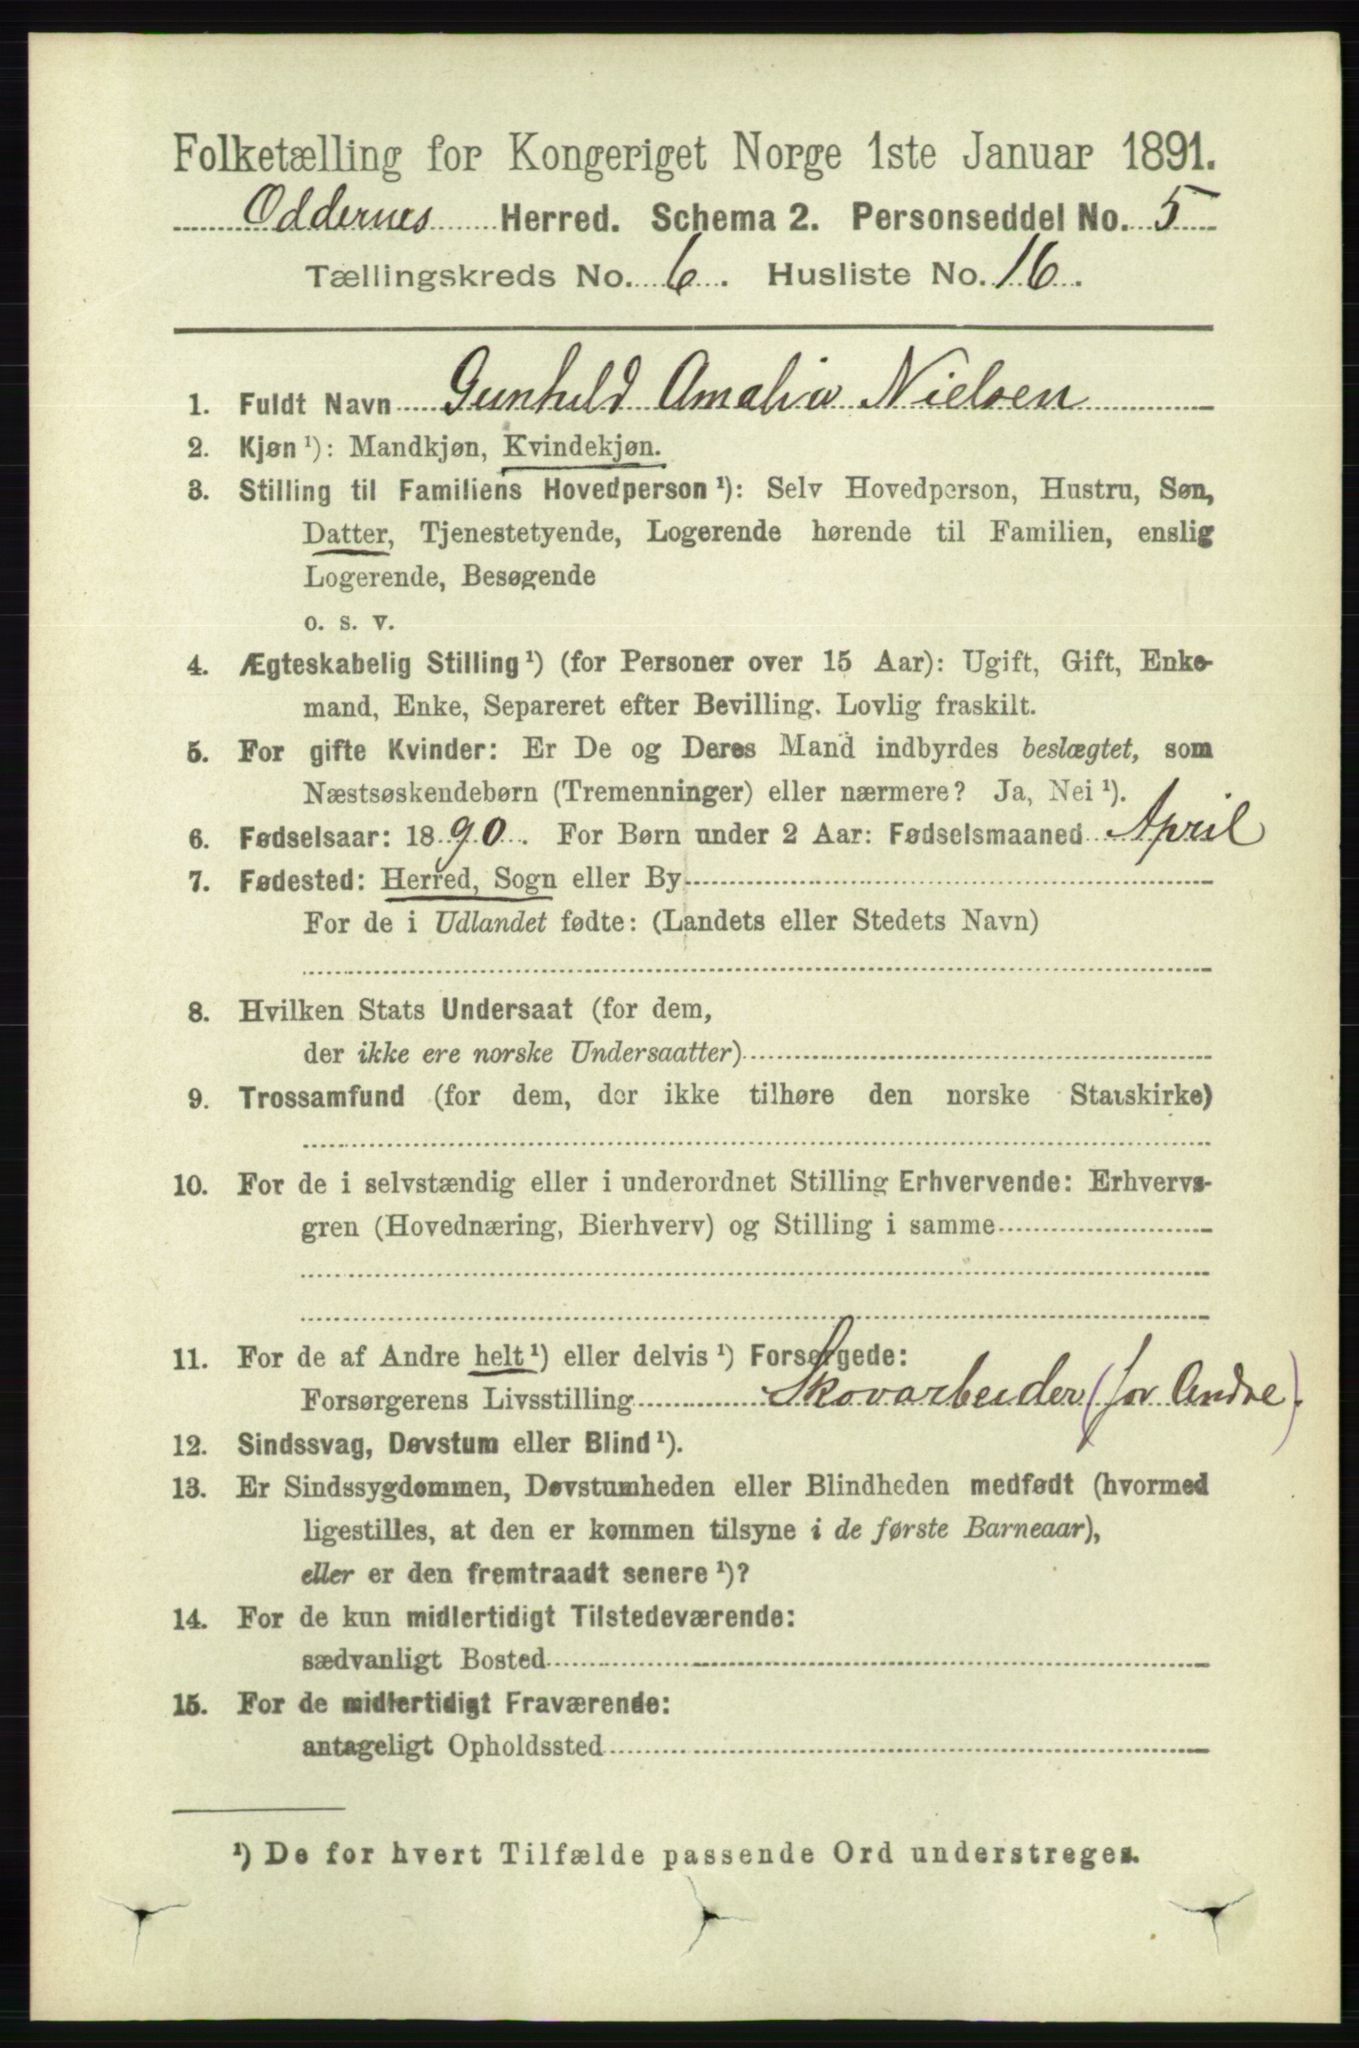 Folketælling for Kongeriget Norge 1ste Januar 1891.
Oddernes Herred. Schema 2. Personseddel No. 5
Tællingskreds No. 6. Husliste No. 16.
1. Fuldt Navn Gunhild Amalia Nielsen
2. Kjøn ¹): Mandkjøn, Kvindekjøn.
3. Stilling til Familiens Hovedperson ¹): Selv Hovedperson, Hustru, Søn,
Datter, Tjenestetyende, Logerende hørende til Familien, enslig
Logerende, Besøgende
o. s. v.
4. Ægteskabelig Stilling ¹) (for Personer over 15 Aar): Ugift, Gift, Enke-
mand, Enke, Separeret efter Bevilling. Lovlig fraskilt.
5. For gifte Kvinder: Er De og Deres Mand indbyrdes beslægtet, som
Næstsøskendebørn (Tremenninger) eller nærmere? Ja, Nei ¹).
6. Fødselsaar: 1890. For Børn under 2 Aar: Fødselsmaaned April
7. Fødested: Herred, Sogn eller By
For de i Udlandet fødte: (Landets eller Stedets Navn)
8. Hvilken Stats Undersaat (for dem,
der ikke ere norske Undersaatter)
9. Trossamfund (for dem, der ikke tilhøre den norske Statskirke)
10. For de i selvstændig eller i underordnet Stilling Erhvervende: Erhvervs-
gren (Hovednæring, Bierhverv) og Stilling i samme
11. For de af Andre helt ¹) eller delvis ¹) Forsørgede:
Forsørgerens Livsstilling Skovarbeider (for Andre).
12. Sindssvag, Døvstum eller Blind ¹).
13. Er Sindssygdommen, Døvstumheden eller Blindheden medfødt (hvormed
ligestilles, at den er kommen tilsyne i de første Barneaar),
eller er den fremtraadt senere ¹)?
14. For de kun midlertidigt Tilstedeværende:
sædvanligt Bosted
15. For de midlertidigt Fraværende:
antageligt Opholdssted
¹) De for hvert Tilfælde passende Ord understreges.